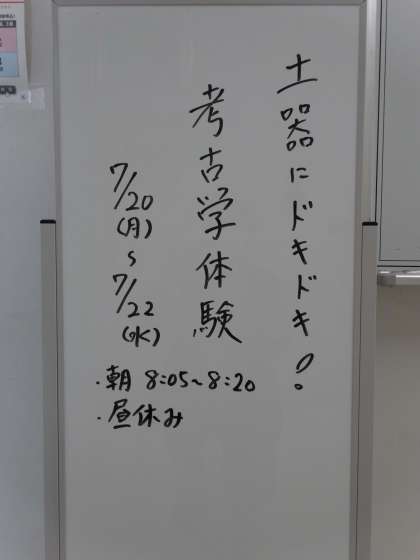 土器にドキドキ!
考古学体験
7/20
(月)
〜
7/22
(水)
・朝 8:05~8:20
・昼休み